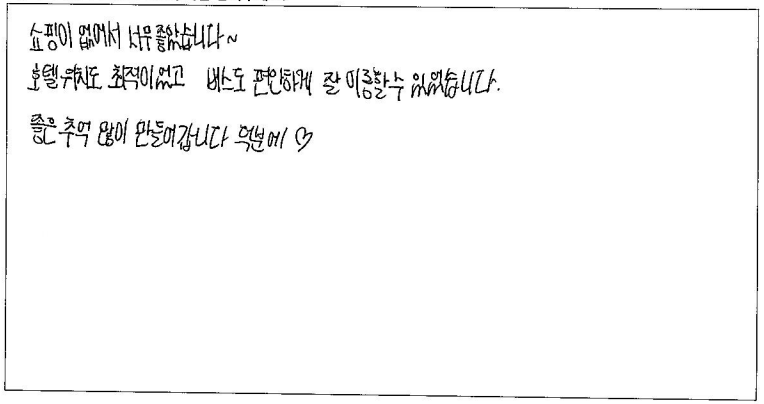 쇼핑이 없어서 너무 좋았습니다~
호텔 위치도 최적이었고 버스도 편안하게 잘 이용할 수 있었습니다.
좋은 추억 많이 만들어갑니다 덕분에 ♡